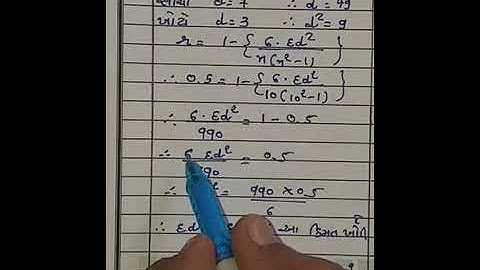 સાચો d = 7 ∴ d² = 49
ખોટો d = 3 ∴ d² = 9
r = 1 - { 6 · Σd² / n(n²-1) }
∴ 0.5 = 1 - { 6 · Σd² / 10(10²-1) }
∴ 6 · Σd² / 990 = 1 - 0.5
∴ 6 Σd² / 990 = 0.5
∴ d² = 990 × 0.5 / 6
∴ Σd આ કિંમત ખોટી